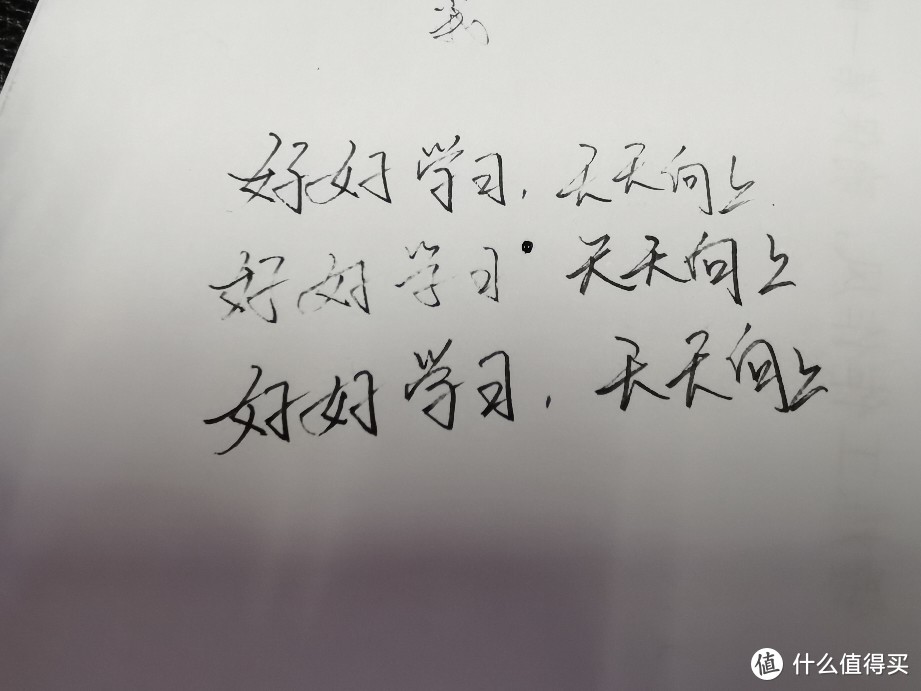 好好学习，天天向上
好好学习 天天向上
好好学习，天天向上
值 什么值得买